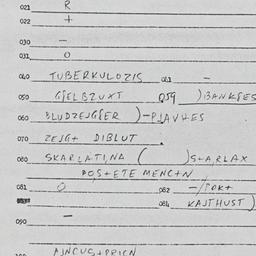 021 R
022 +
030 —
031 O
040 TUBERKULOZIS 041 —
050 GJELBZUXT 059 )BANKJES
060 BLUDZEJGJER )-PJAVHES
070 ZEJG+ DIBLUT.
080 SKARLATI,NA ( )S+ARLAX
POS+ETE MENC+N
081 O 082 —/POK+
084 KAJTHUST)
090 —